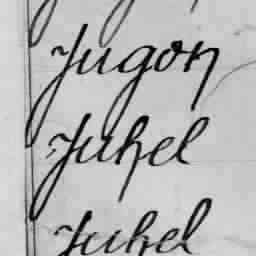 Jugon
Juhel
Juhel